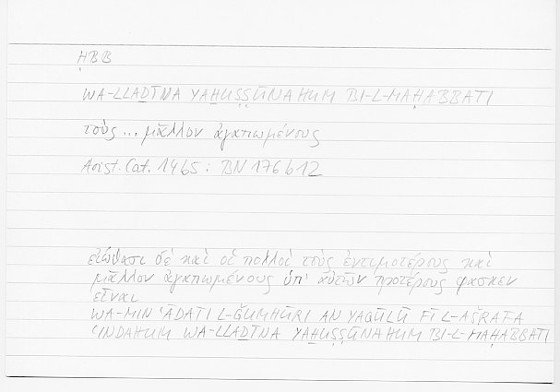 ḤBB
WA-LLAḎĪNA YAḪUṢṢŪNAHUM BI-L-MAḤABBATI
τοὺς ... μᾶλλον ἀγαπωμένους
Arist. Cat. 14b5 : BN 176b12
εἰώθασι δὲ καὶ οἱ πολλοὶ τοὺς ἐντιμοτέρους καὶ
μᾶλλον ἀγαπωμένους ὑπ' αὐτῶν προτέρους φάσκειν
εἶναι
WA-MIN ʿĀDATI L-ǦUMHŪRI AN YAQŪLŪ FĪ L-AŠRAFA
ʿINDAHUM WA-LLAḎĪNA YAḪUṢṢŪNAHUM BI-L-MAḤABBATI